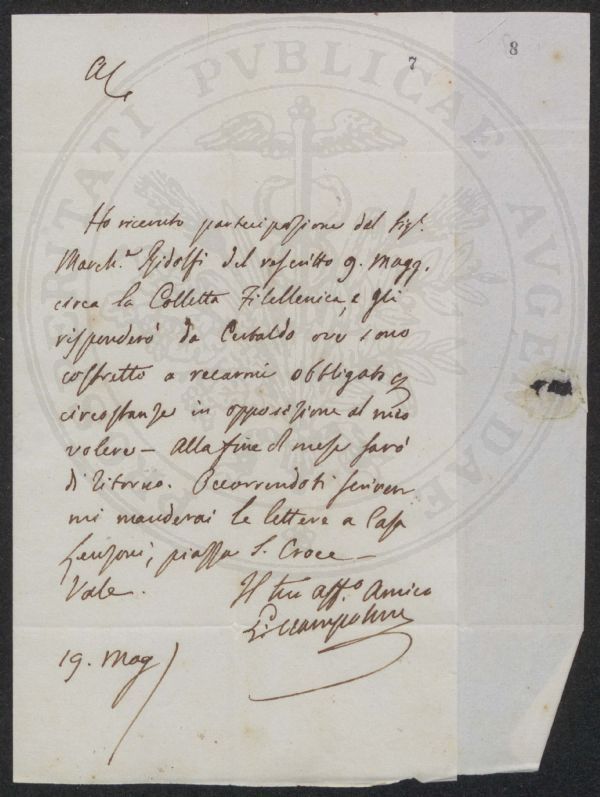 7
8
AC
Ho ricevuto partecipazione del Sigr.
March.e Ridolfi del rescritto 9. Magg.
circa la Colletta Filellenica, e gli
risponderò da Certaldo ove sono
costretto a recarmi obbligato
circostanze in opposizione al mio
volere – Alla fine d mese sarò
di ritorno. Occorrendoti scriver
mi manderai le lettere a Casa
Lenzoni, piazza S. Croce –
Vale.
Il tuo aff.o Amico
19. Mag
PVBLICAE
AVGENDAE